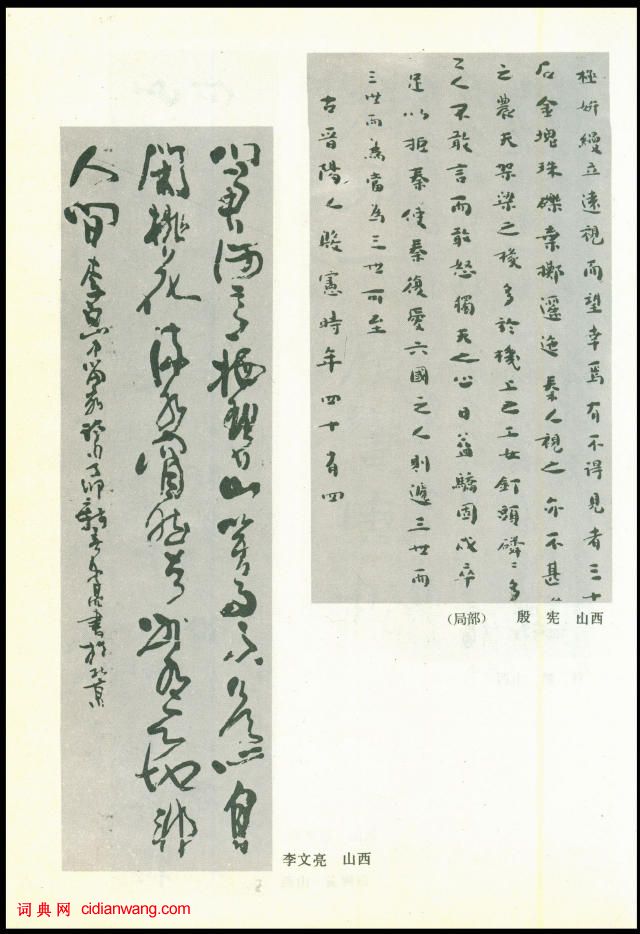 極妍縵立遠視而望幸焉有不得見者三十
石金塊珠礫棄擲邐迤秦人視之亦不甚
之農夫架梁之椽多於機上之工女釘頭磷〻多
之人不敢言而敢怒獨夫之心日益驕固戍卒
足以拒秦使秦復愛六國之人則遞三世而
三世而為當為三世可至
古晉陽人殷憲時年四十有四
(局部) 殷 宪 山西
栖碧山笑而不答心自
閑桃花流水窅然去別有天地非
人間 李白 書於北京
李文亮 山西
词典网 cidianwang.com